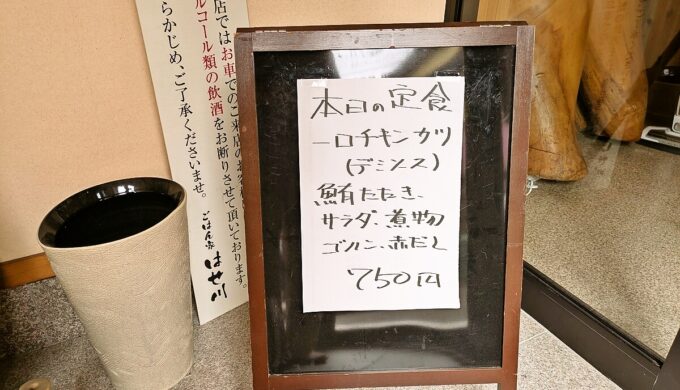 本日の定食
一口チキンカツ
(デミソース)
鮪たたき、
サラダ、煮物
ゴハン、赤だし
750円
店ではお車でのご来店のお客様
ルコール類の飲酒をお断りさせて頂いております。
らかじめ、ご了承くださいませ。
ごはん家 はせ川